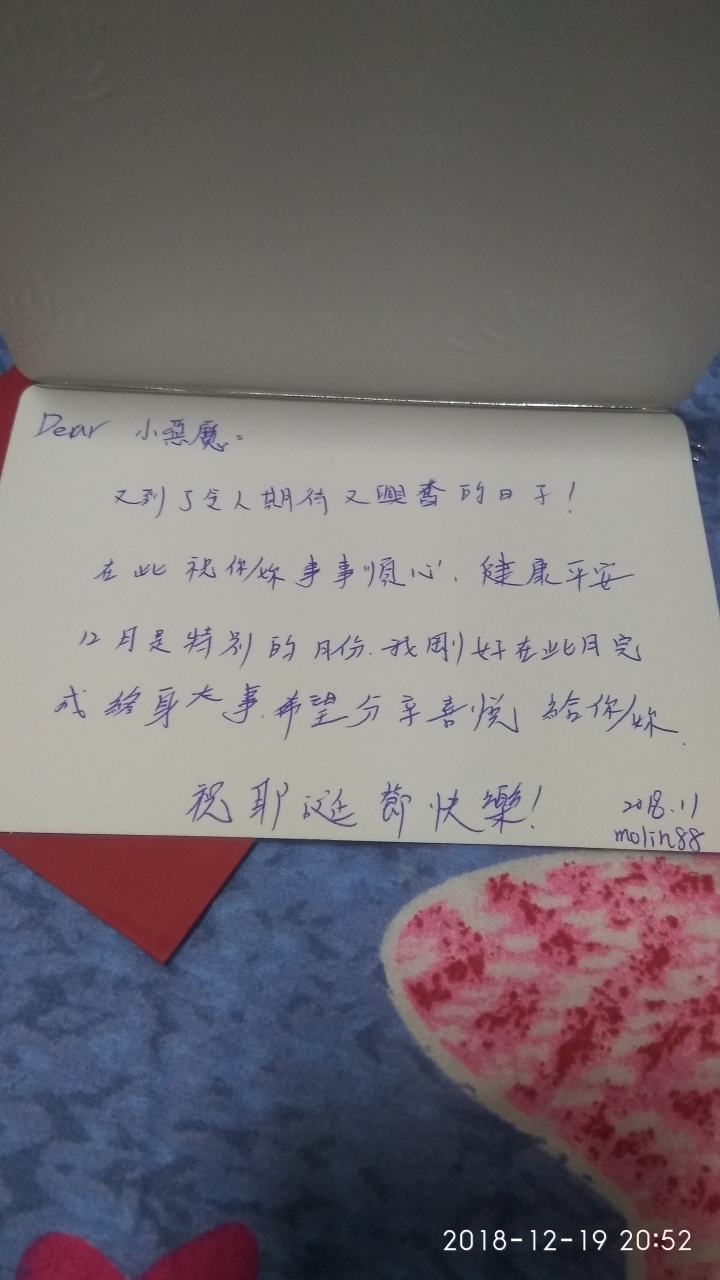 Dear 小惡魔：
又到了令人期待又興奮的日子！
在此祝你/妳事事順心、健康平安
12月是特別的月份.我剛好在此月完
成終身大事.希望分享喜悅給你/妳.
祝耶誕節快樂！
2018.11
molin88
2018-12-19 20:52